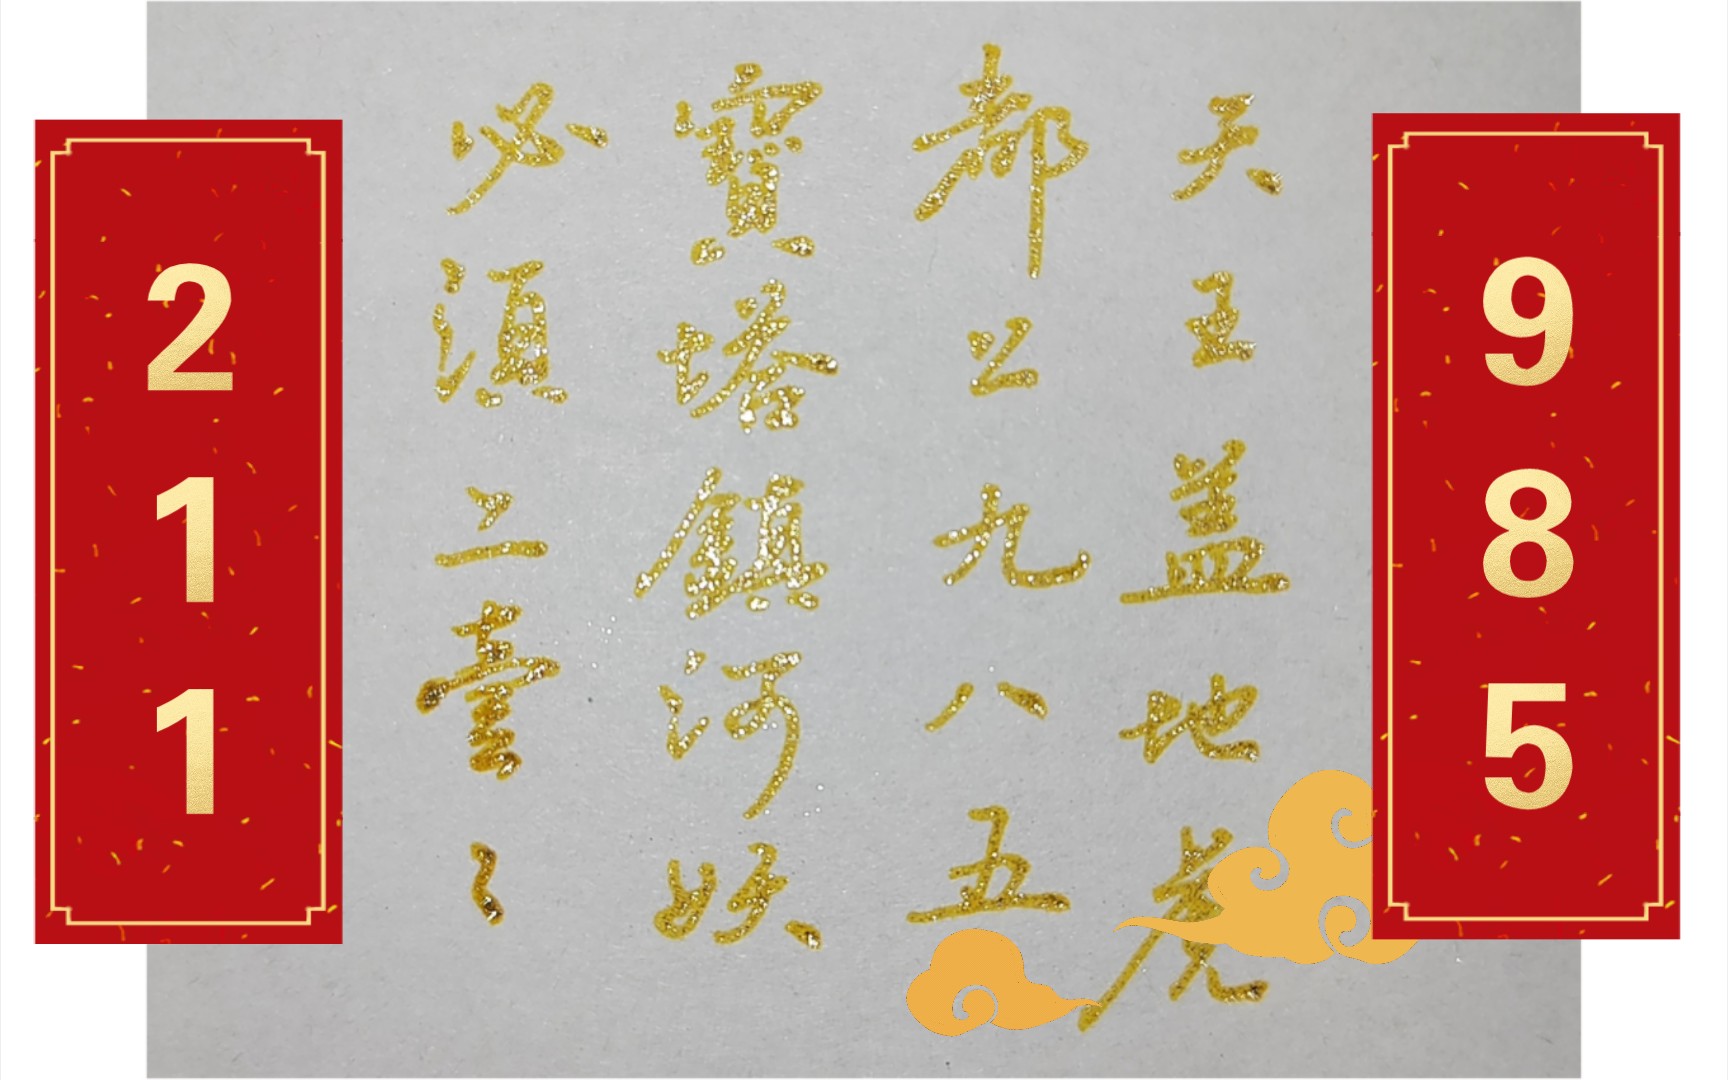 9
8
5
天王盖地虎
都上九八五
寶塔鎮河妖
必須二壹々
2
1
1